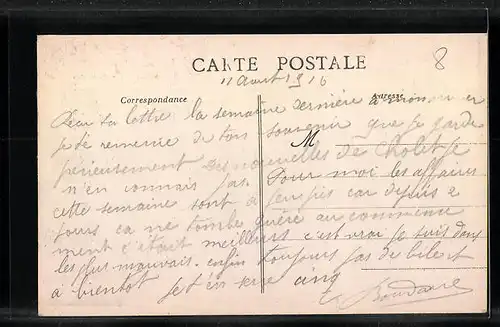 8
CARTE POSTALE
11 Aout 1916
Correspondance Adresse
la lettre la semaine dernière à
je te remercie de ton souvenir que je garde
M
précieusement des nouvelles de Cholet je
n'en connais pas. Pour moi les affaires
cette semaine sont à car depuis 2
jours ça ne tombe guère au commence
ment c'était meilleurs c'est vrai je suis dans
les plus mauvais. enfin toujours pas de
à bientot je t'en serre cinq